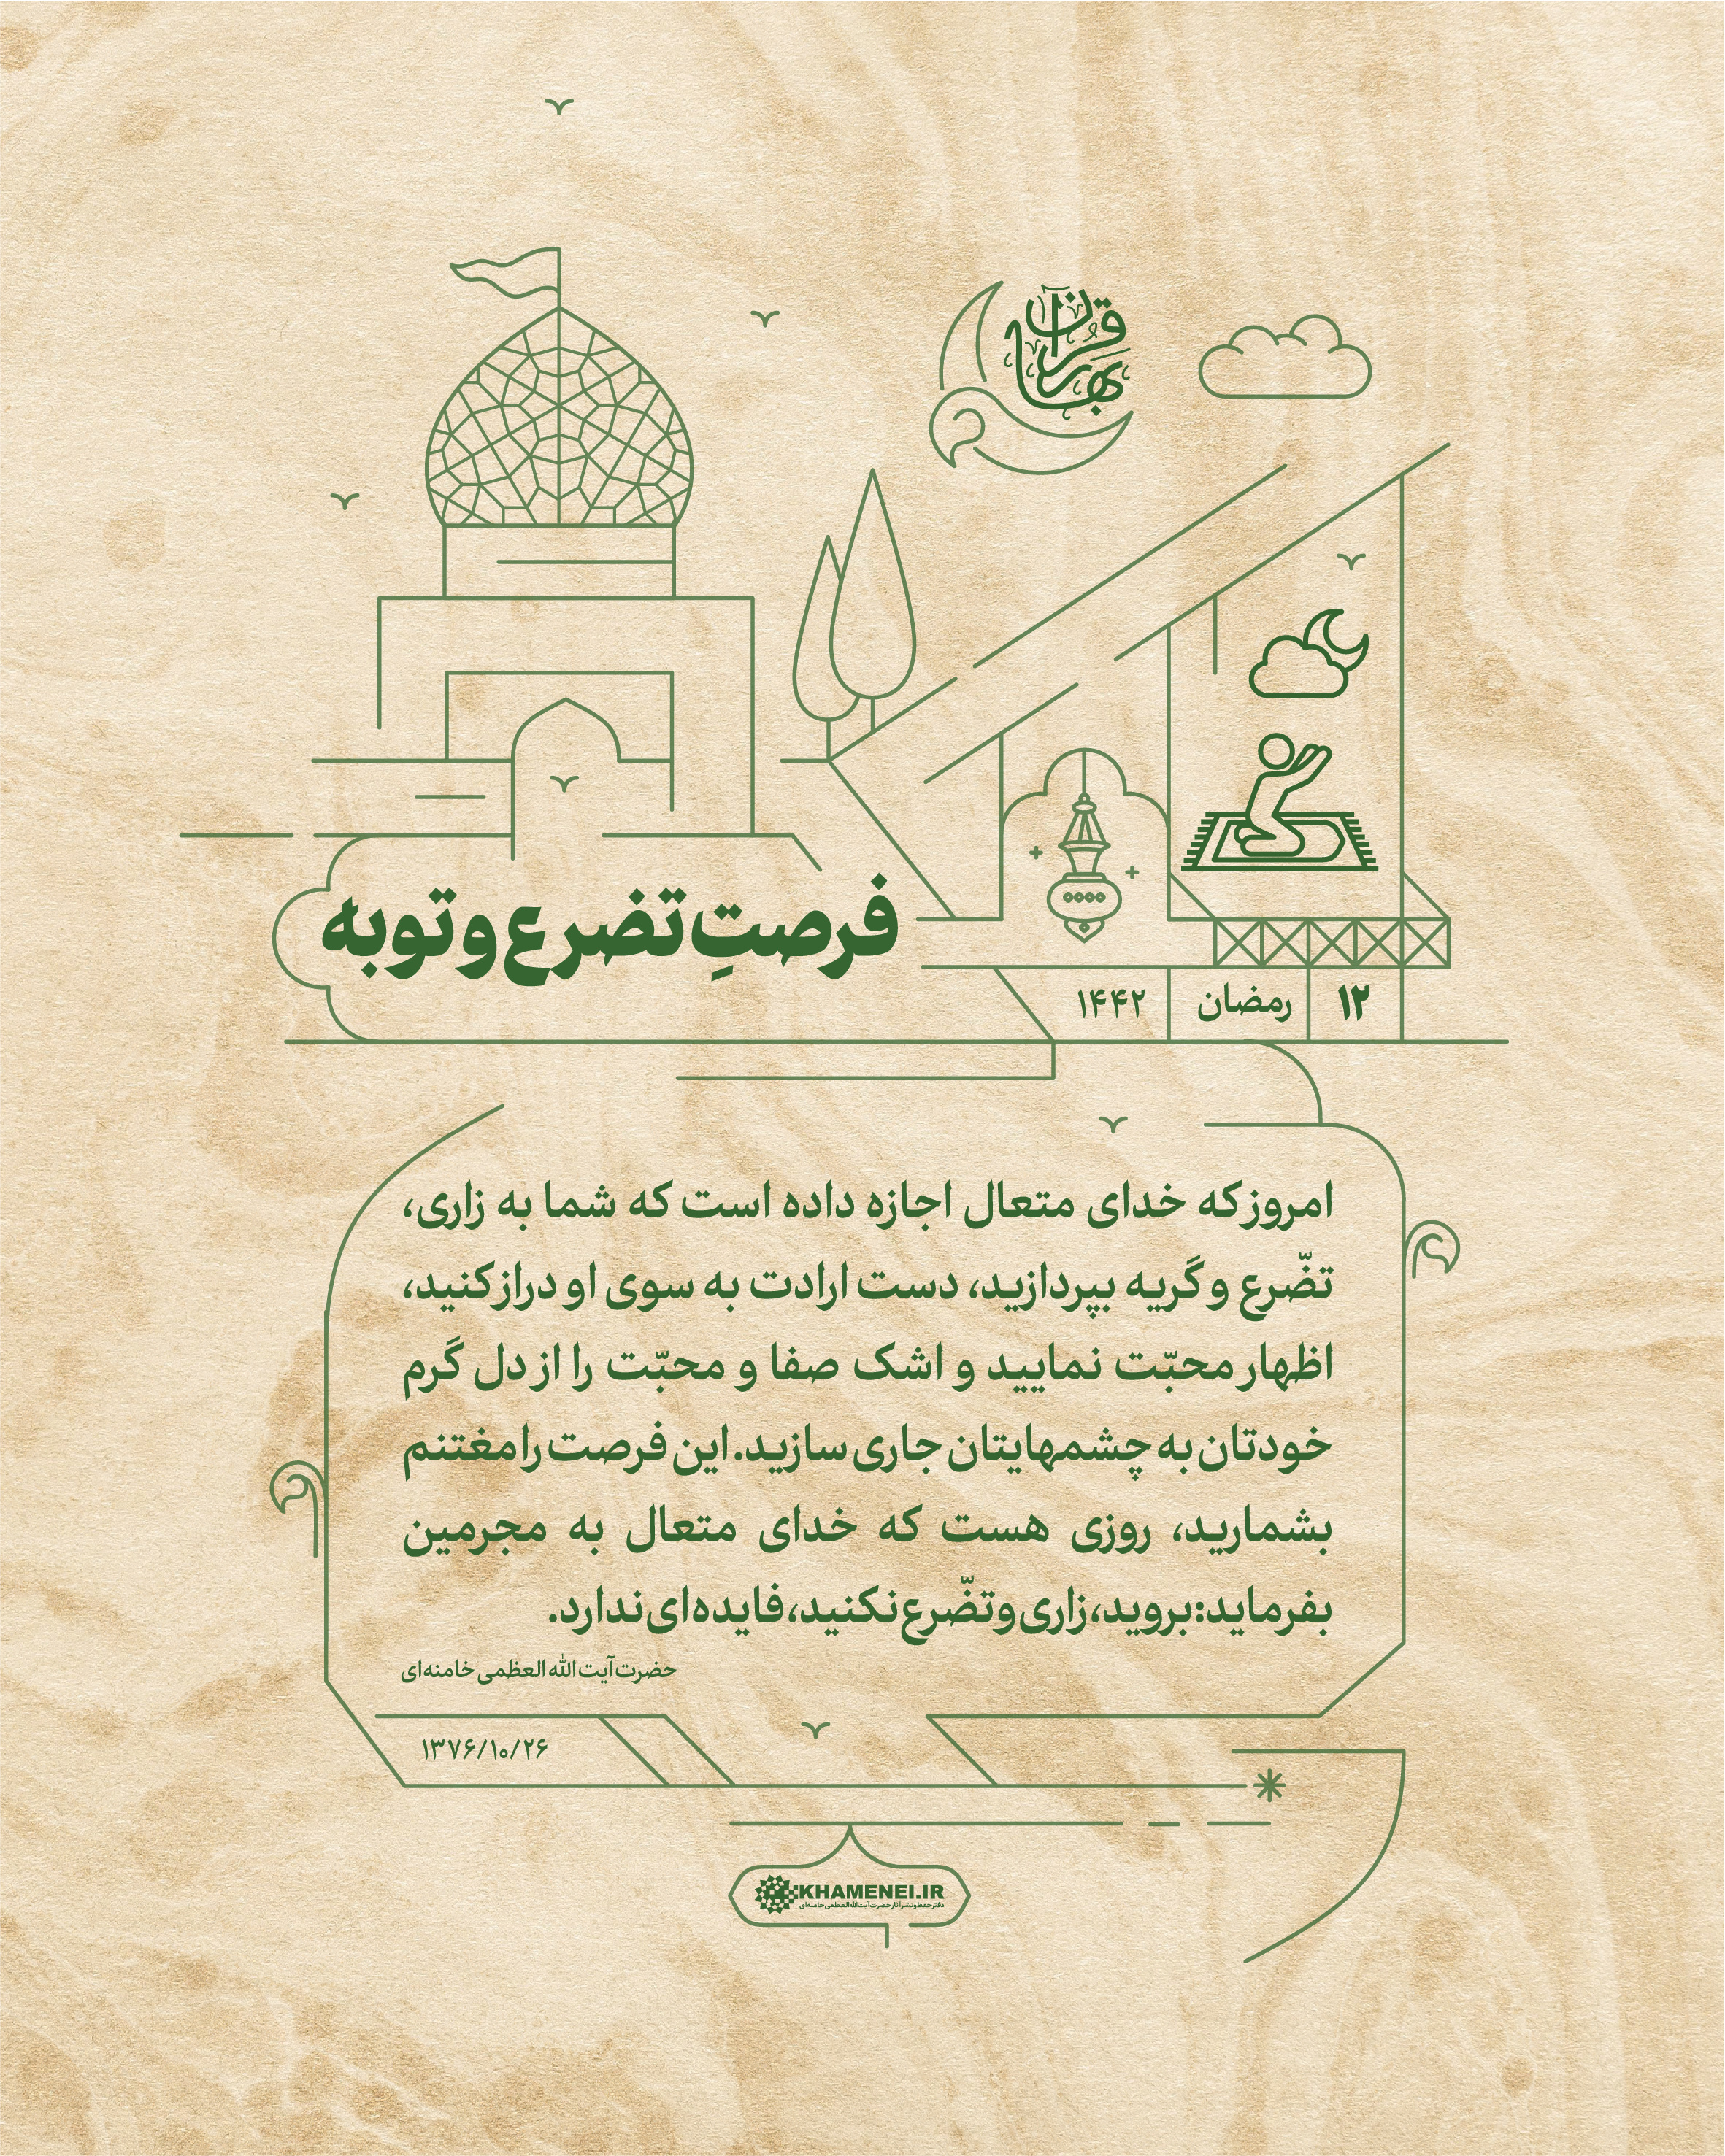 بهار قرآن
فرصتِ تضرع و توبه
۱۲ رمضان ۱۴۴۲
امروز که خدای متعال اجازه داده است که شما به زاری،
تضّرع و گریه بپردازید، دست ارادت به سوی او دراز کنید،
اظهار محبّت نمایید و اشک صفا و محبّت را از دل گرم
خودتان به چشمهایتان جاری سازید. این فرصت را مغتنم
بشمارید، روزی هست که خدای متعال به مجرمین
بفرماید: بروید، زاری و تضّرع نکنید، فایده‌ای ندارد.
حضرت آیت الله العظمی خامنه‌ای
۱۳۷۶/۱۰/۲۶
KHAMENEI.IR
دفتر حفظ و نشر آثار حضرت آیت‌الله‌العظمی خامنه‌ای